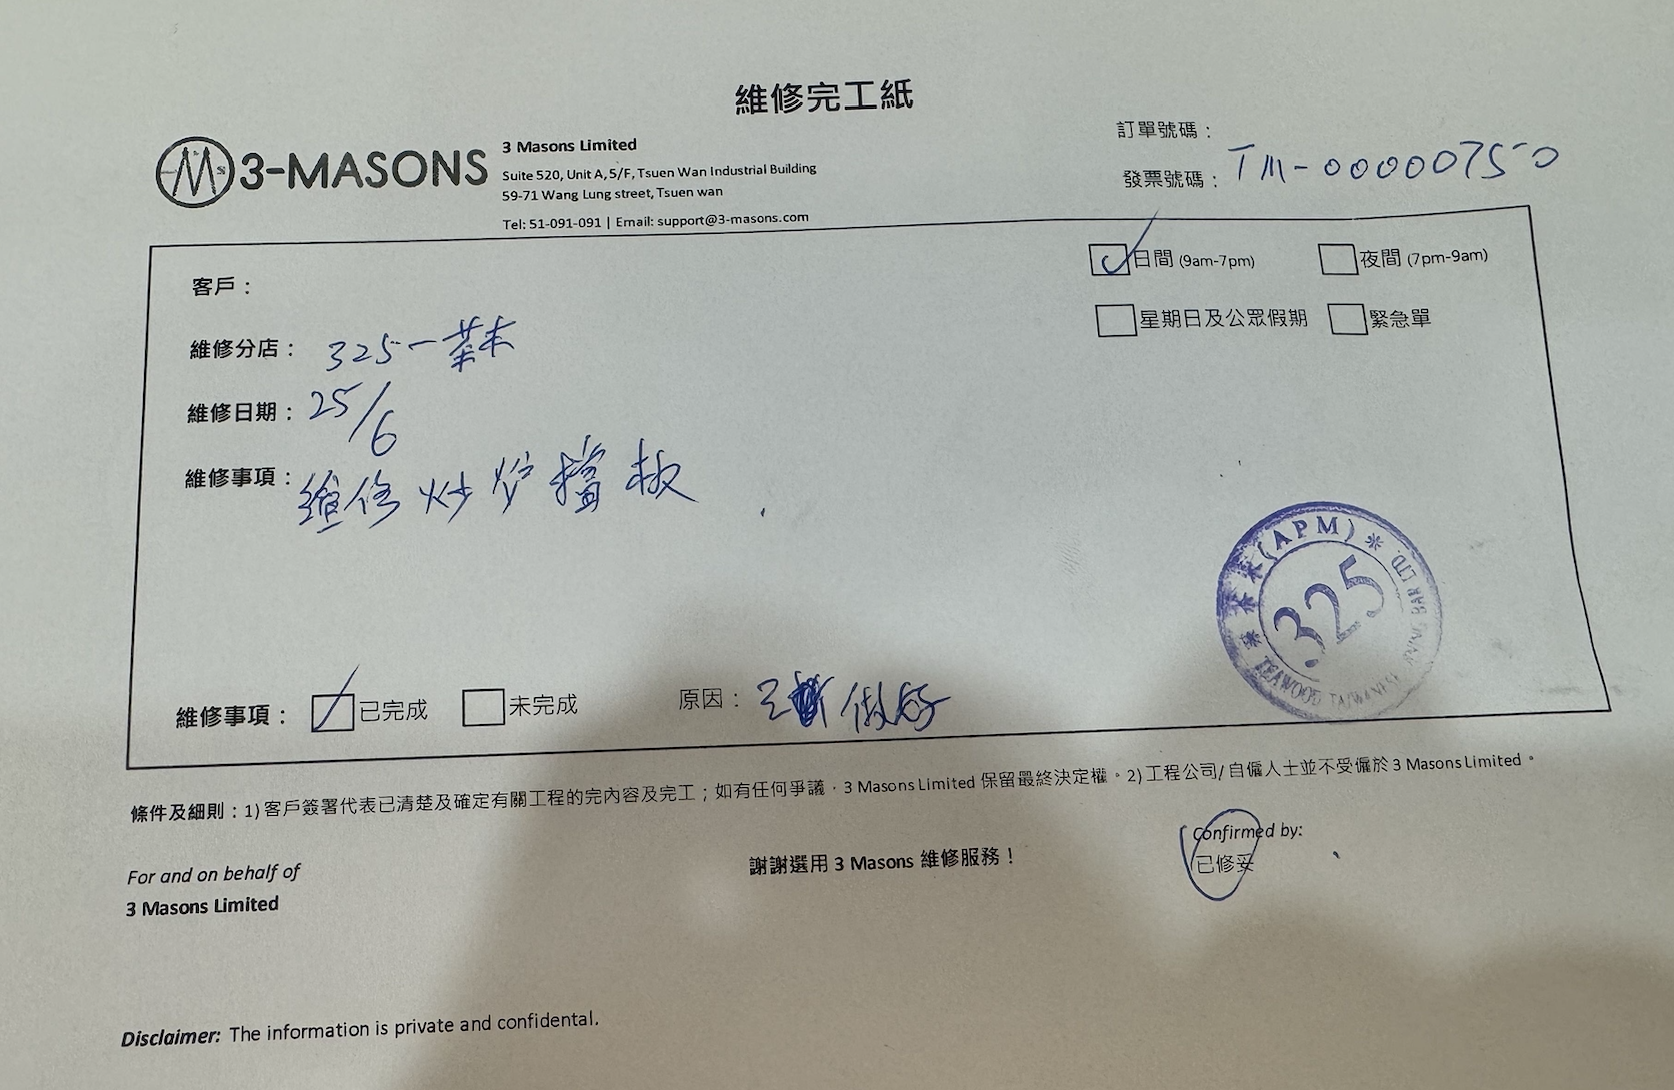 維修完工紙
3-MASONS
3 Masons Limited
Suite 520, Unit A, 5/F, Tsuen Wan Industrial Building
59-71 Wang Lung street, Tsuen wan
Tel: 51-091-091 | Email: support@3-masons.com
訂單號碼：
發票號碼： TM-00000750
日間 (9am-7pm) 夜間 (7pm-9am)
星期日及公眾假期 緊急單
客戶：
維修分店： 325一葉木
維修日期： 25/6
維修事項： 維修炒炉擋板
(APM)
325
TEAWOOD TAIWANESE BAR LTD
維修事項： 已完成 未完成 原因： 做好
條件及細則：1) 客戶簽署代表已清楚及確定有關工程的完內容及完工；如有任何爭議，3 Masons Limited 保留最終決定權。2) 工程公司/ 自僱人士並不受僱於 3 Masons Limited。
For and on behalf of
3 Masons Limited
謝謝選用 3 Masons 維修服務！
Confirmed by:
已修妥
Disclaimer: The information is private and confidental.